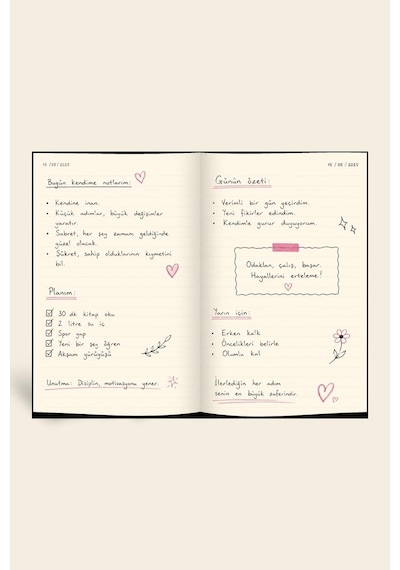 15 / 05 / 2025
Bugün kendime notlarım:
• Kendine inan.
• Küçük adımlar, büyük değişimler
yaratır.
• Sabret, her şey zamanı geldiğinde
güzel olacak.
• Şükret, sahip olduklarının kıymetini
bil.
Planım:
30 dk kitap oku
2 litre su iç
Spor yap
Yeni bir şey öğren
Akşam yürüyüşü
Unutma: Disiplin, motivasyonu yener.
15 / 05 / 2025
Günün özeti:
• Verimli bir gün geçirdim.
• Yeni fikirler edindim.
• Kendimle gurur duyuyorum.
Odaklan, çalış, başar.
Hayallerini erteleme!
Yarın için:
• Erken kalk
• Öncelikleri belirle
• Olumlu kal
İlerlediğin her adım
senin en büyük zaferindir.